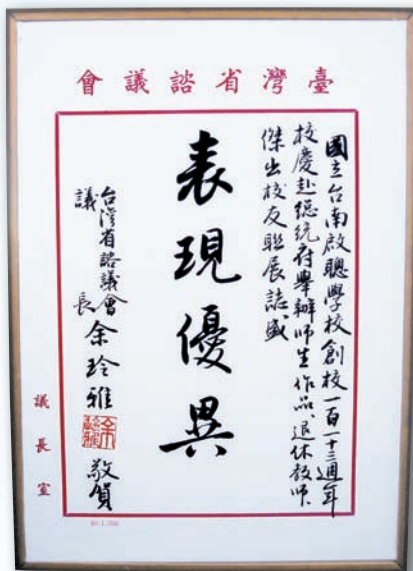 臺灣省諮議會
國立台南啟聰學校創校一百一十三週年
校慶赴總統府舉辦師生作品、退休教師、
傑出校友聯展誌盛
表現優異
台灣省諮議會
議長余玲雅敬賀
余玲雅
議長室